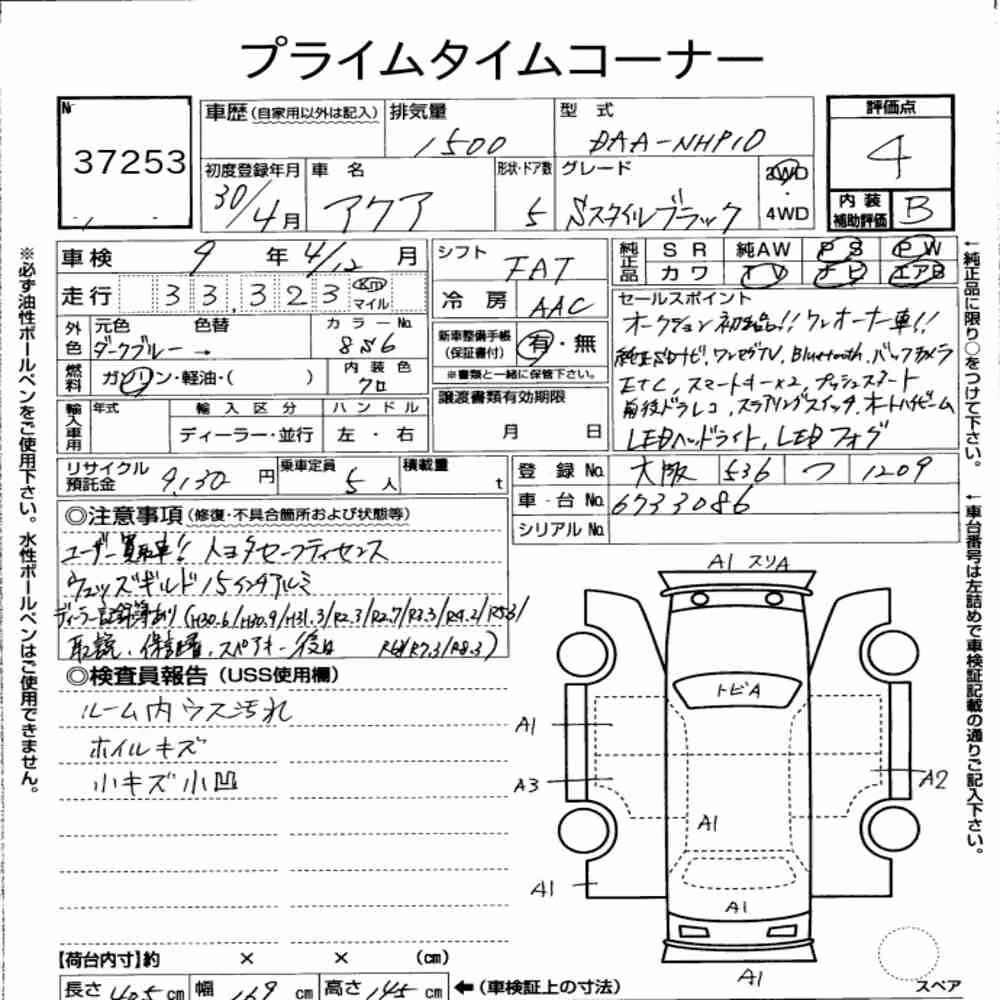 プライムタイムコーナー
№ 37253
車歴(自家用以外は記入)
排気量 1500
型式 DAA-NHP10
評価点 4
初度登録年月 30/4月
車名 アクア
形状・ドア数 5
グレード Sスタイルブラック
2WD・4WD
内装補助評価 B
車検 9年 4/12月
シフト FAT
純正品 SR 純AW PS PW
カワ TV ナビ エアB
走行 33,323 Km マイル
冷房 AAC
セールスポイント
オークション初出品!! ワンオーナー車!!
純正SDナビ, ワンセグTV, Bluetooth, バックカメラ
ETC, スマートキー×2, プッシュスタート
前後ドラレコ, ステアリングスイッチ, オートハイビーム
LEDヘッドライト, LEDフォグ
外色 元色 色替 ダークブルー →
カラーNo. 8S6
新車整備手帳(保証書付) 有・無
※書類と一緒に保管下さい。
燃料 ガソリン・軽油・( )
内装色 クロ
譲渡書類有効期限 月 日
輸入車用 年式 輸入区分 ハンドル
ディーラー・並行 左・右
リサイクル預託金 9,130円
乗車定員 5人
積載量 t
登録No. 大阪 536 つ 1209
車台No. 6733086
シリアルNo.
◎注意事項(修復・不具合箇所および状態等)
ユーザー買取車!! トヨタセーフティセンス
ウェッズギルド15インチアルミ
ディーラー記録簿あり(H30.6/H30.9/H31.3/R2.3/R2.7/R3.3/R4.2/R5.3/
取説、保証書、スペアキー後日 R6.4/R7.3/R8.3)
◎検査員報告(USS使用欄)
ルーム内ウス汚れ
ホイルキズ
小キズ小凹
A1 スリA
トビA
A1
A3
A2
A1
A1
A1
A1
スペア
【荷台内寸】約 × × (cm)
長さ 405cm 幅 169cm 高さ 145cm ←(車検証上の寸法)
※必ず油性ボールペンをご使用下さい。水性ボールペンはご使用できません。
←純正品に限り○をつけて下さい。
←車台番号は左詰めで車検証記載の通りご記入下さい。